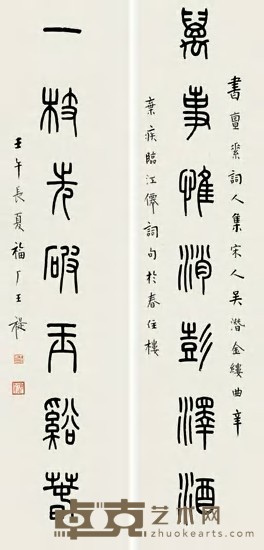 萬事惟消彭澤酒
書亶素詞人集宋人吳潛金縷曲辛
棄疾臨江僊詞句於春住樓
一枝先破玉谿春
壬午長夏福厂王禔
卓克艺术网
zhuokearts.com